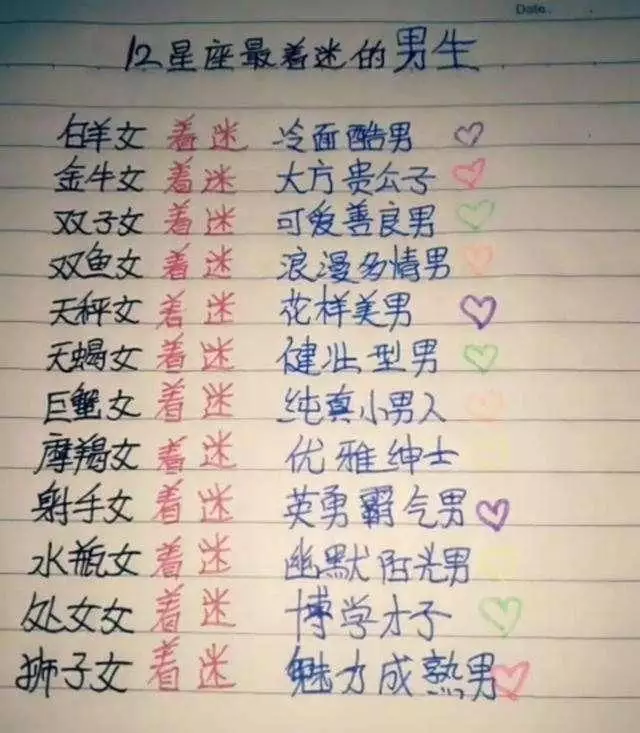 Date.
12星座最着迷的男生
白羊女 着迷 冷面酷男
金牛女 着迷 大方贵公子
双子女 着迷 可爱善良男
双鱼女 着迷 浪漫多情男
天秤女 着迷 花样美男
天蝎女 着迷 健壮型男
巨蟹女 着迷 纯真小男人
摩羯女 着迷 优雅绅士
射手女 着迷 英勇霸气男
水瓶女 着迷 幽默阳光男
处女女 着迷 博学才子
狮子女 着迷 魅力成熟男